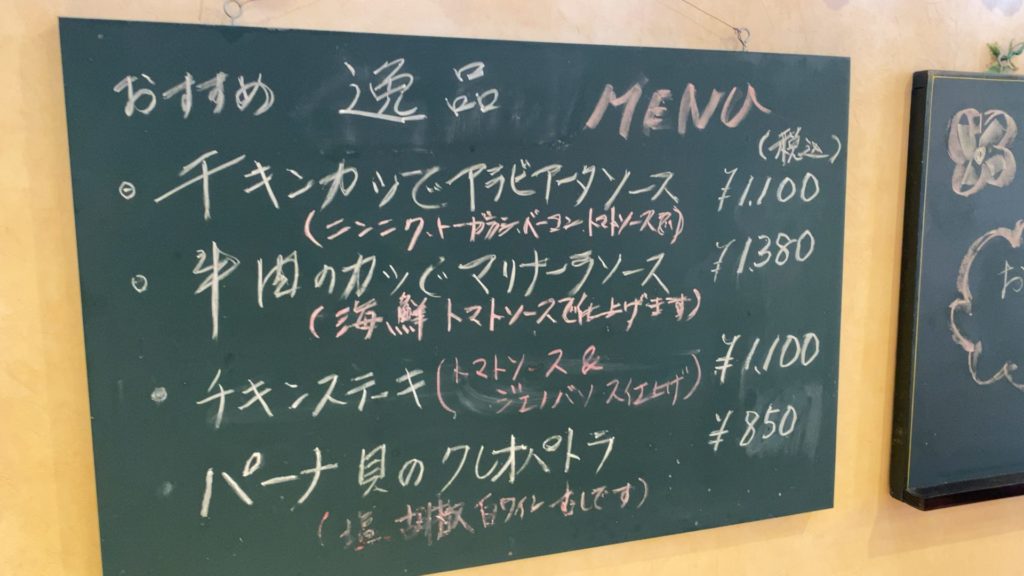 おすすめ 逸品 MENU
(税込)
チキンカツでアラビアータソース ¥1.100
(ニンニク、トーガラシ、ベーコン、トマトソースです)
牛肉のカツでマリナーラソース ¥1.380
(海鮮トマトソースで仕上げます)
チキンステーキ(トマトソース & ¥1,100
ジェノバソース仕上げ)
パーナ貝のクレオパトラ ¥850
(塩、胡椒、白ワインむしです)
お